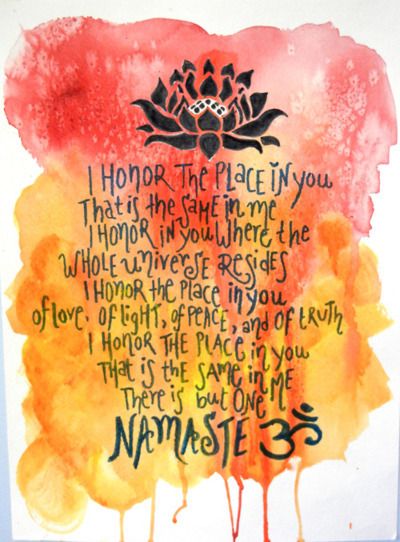 I HONOR THE PLACE IN YOU
That is the SAME in me
I HONOR in YOU Where the
WHOLE UNIVERSE RESIDES
I HONOR the PLACE in you
of love, of light, of PEACE, and of TRUTH
I HONOR THE PLACE in you
THAT is the SAME in ME
There is but ONE
NAMASTÉ ॐ